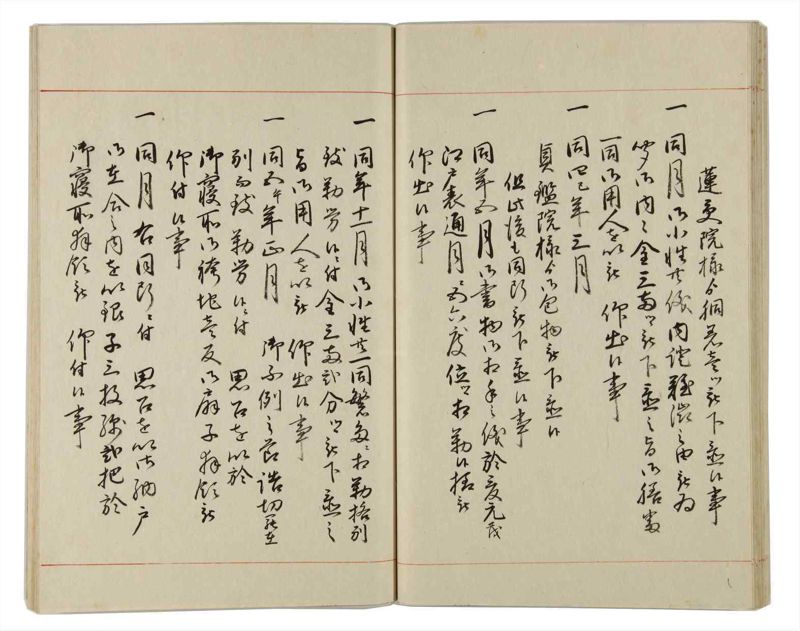 蓮乗院様ゟ綿壱〆被下置候事
一 同月御小姓共儀内証難渋之由被為
聞御内々金三両ツヽ被下置之旨御膳番
同御用人を以被 仰出候事
一 同四巳年三月
貞鑑院様ゟ御包物被下置候
但此後も同断被下置候事
一 同年五月御書物御相手之儀於爰元我
江戸表通月ニ五六度位ツヽ相勤候様被
仰出候事
一 同年十一月御小姓共一同繁多ニ相勤格別
致勤労候ニ付金三両弐分ツヽ被下置之
旨御用人を以被 仰出候事
一 同五午年正月 御不例之節詰切罷在
別而致勤労候ニ付 思召を以於
御寝所御袴地壱反御扇子拝領被
仰付候事
一 同月右同断ニ付 思召を以御納戸
御在合之内を以銀子三枚綿弐把於
御寝所拝領被 仰付候事